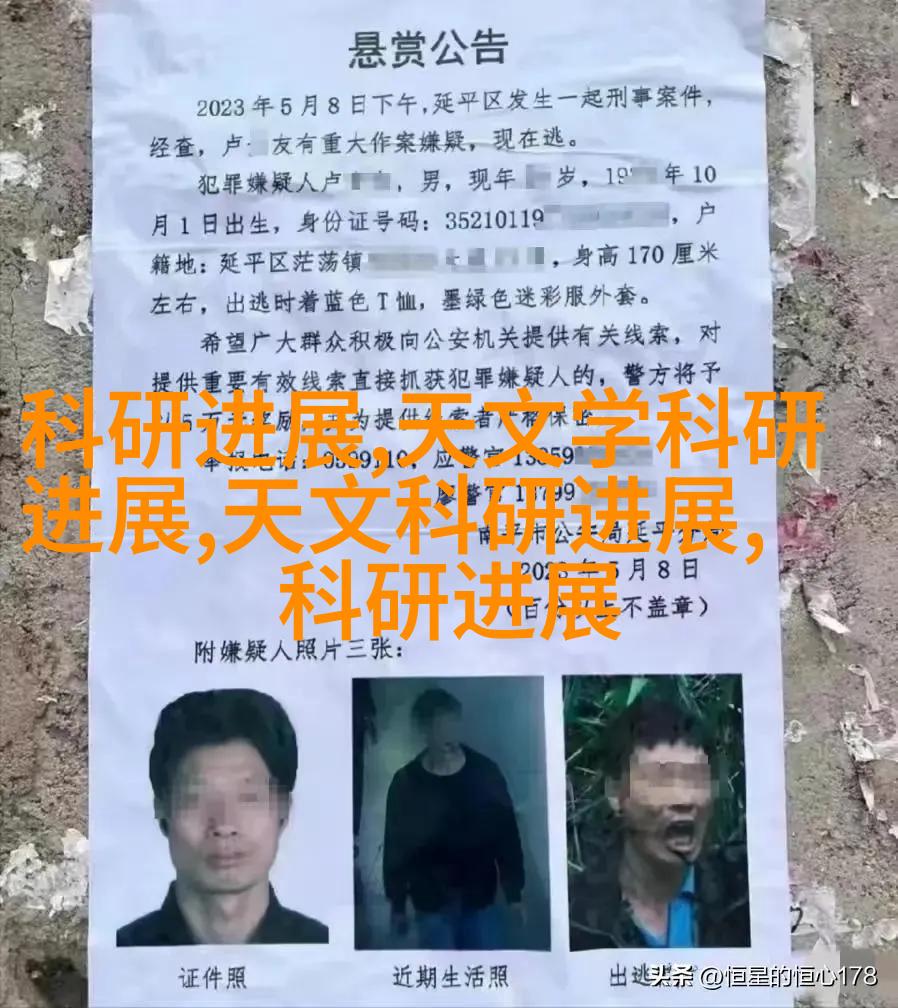 悬赏公告
2023年5月8日下午,延平区发生一起刑事案件,
经查,卢 友有重大作案嫌疑,现在逃。
犯罪嫌疑人卢 ,男,现年 岁,19 年10
月1日出生,身份证号码:35210119 ,户
籍地:延平区茫荡镇 ,身高170厘米
左右,出逃时着蓝色T恤,墨绿色迷彩服外套。
希望广大群众积极向公安机关提供有关线索,对
提供重要有效线索直接抓获犯罪嫌疑人的,警方将予
科研进展,天文学科研
进展,天文科研进展,
科研进展
应警官13859
廖警官13799
2023年5月8日
附嫌疑人照片三张:
证件照
近期生活照
出逃
头条 @恒星的恒心178